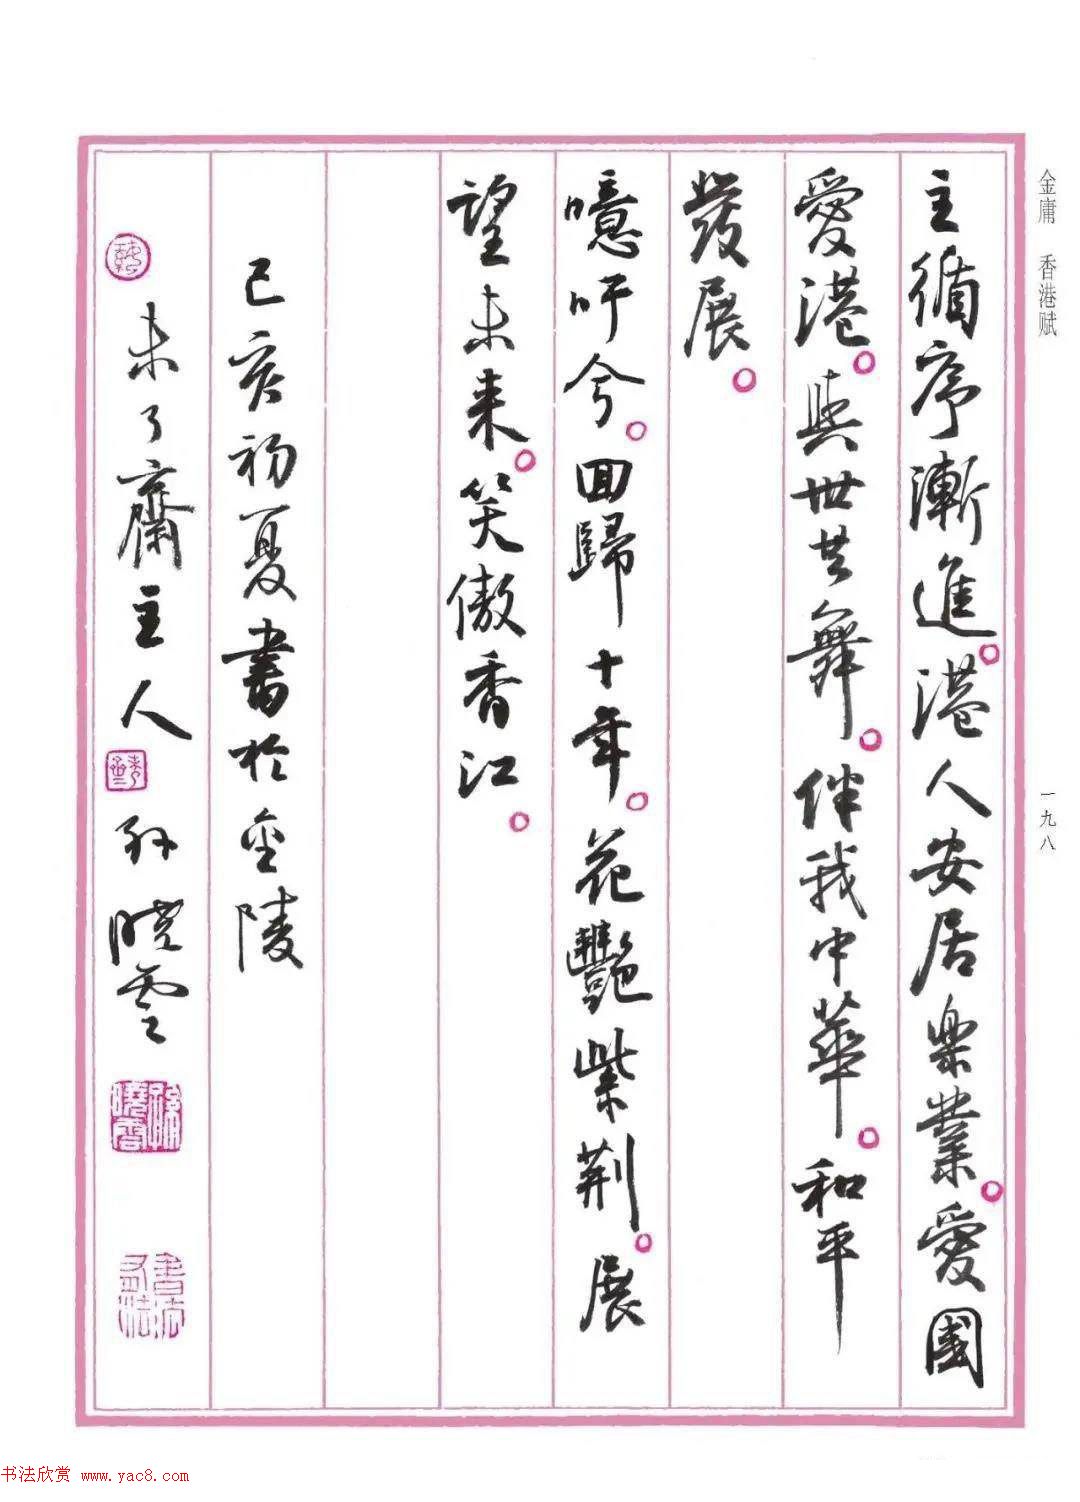 金庸 香港赋
一九八
主循序漸進。港人安居樂業。愛國
愛港。與世共舞。伴我中華。和平
發展。
噫吁兮。回歸十年。花豔紫荆。展
望未来。笑傲香江。
己亥初夏書於金陵
未了齋主人 孙晓雲
书法欣赏 www.yac8.com